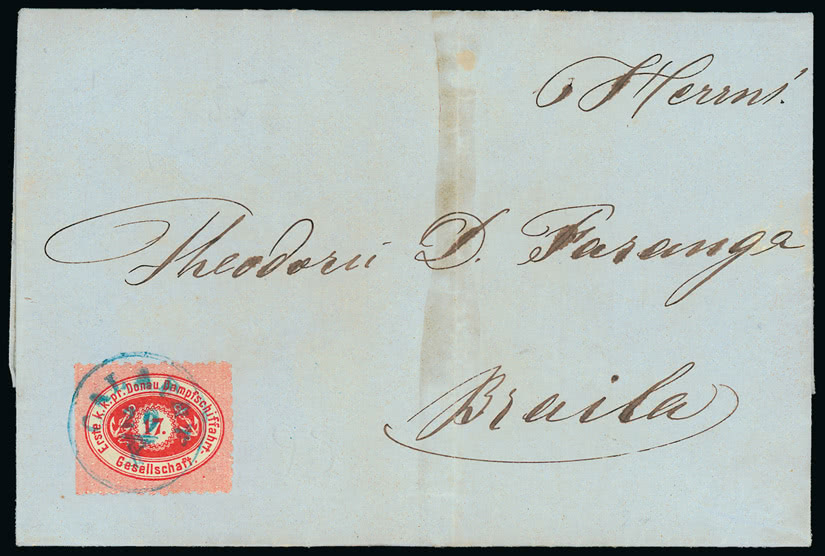 Herrn
Theodorii D. Faranga
Braila
Erste k.k.pr. Donau Dampfschiffahrt
17.
Gesellschaft